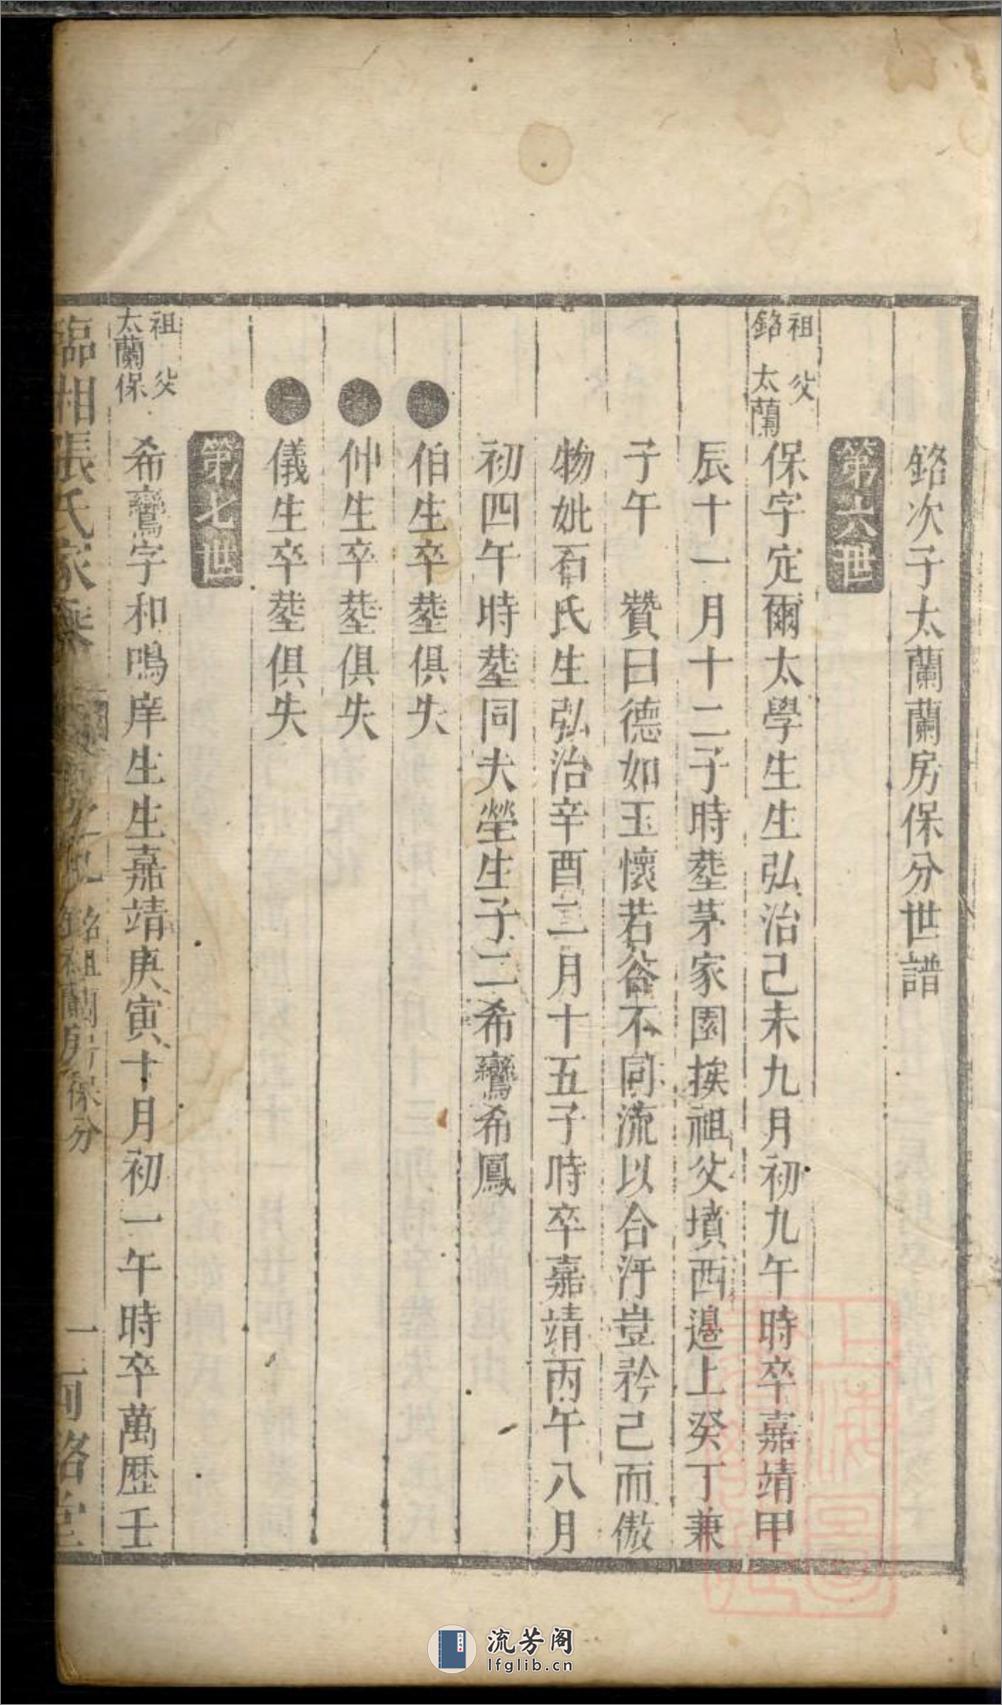 銘次子太蘭蘭房保分世譜
第六世
祖銘
父太蘭
保字定爾太學生生弘治己未九月初九午時卒嘉靖甲
辰十一月十二子時塟茅家園挨祖父墳西邉上癸丁兼
子午 贊曰德如玉懷若谷不同流以合汙豈矜己而傲
物妣石氏生弘治辛酉三月十五子時卒嘉靖丙午八月
初四午時塟同夫塋生子二希鸞希鳳
伯生卒塟俱失
仲生卒塟俱失
儀生卒塟俱失
第七世
祖太蘭
父保
希鸞字和鳴庠生生嘉靖庚寅十月初一午時卒萬歷壬
臨湘張氏家乘 銘祖蘭房保分 一 河洛堂
流芳阁
lfglib.cn